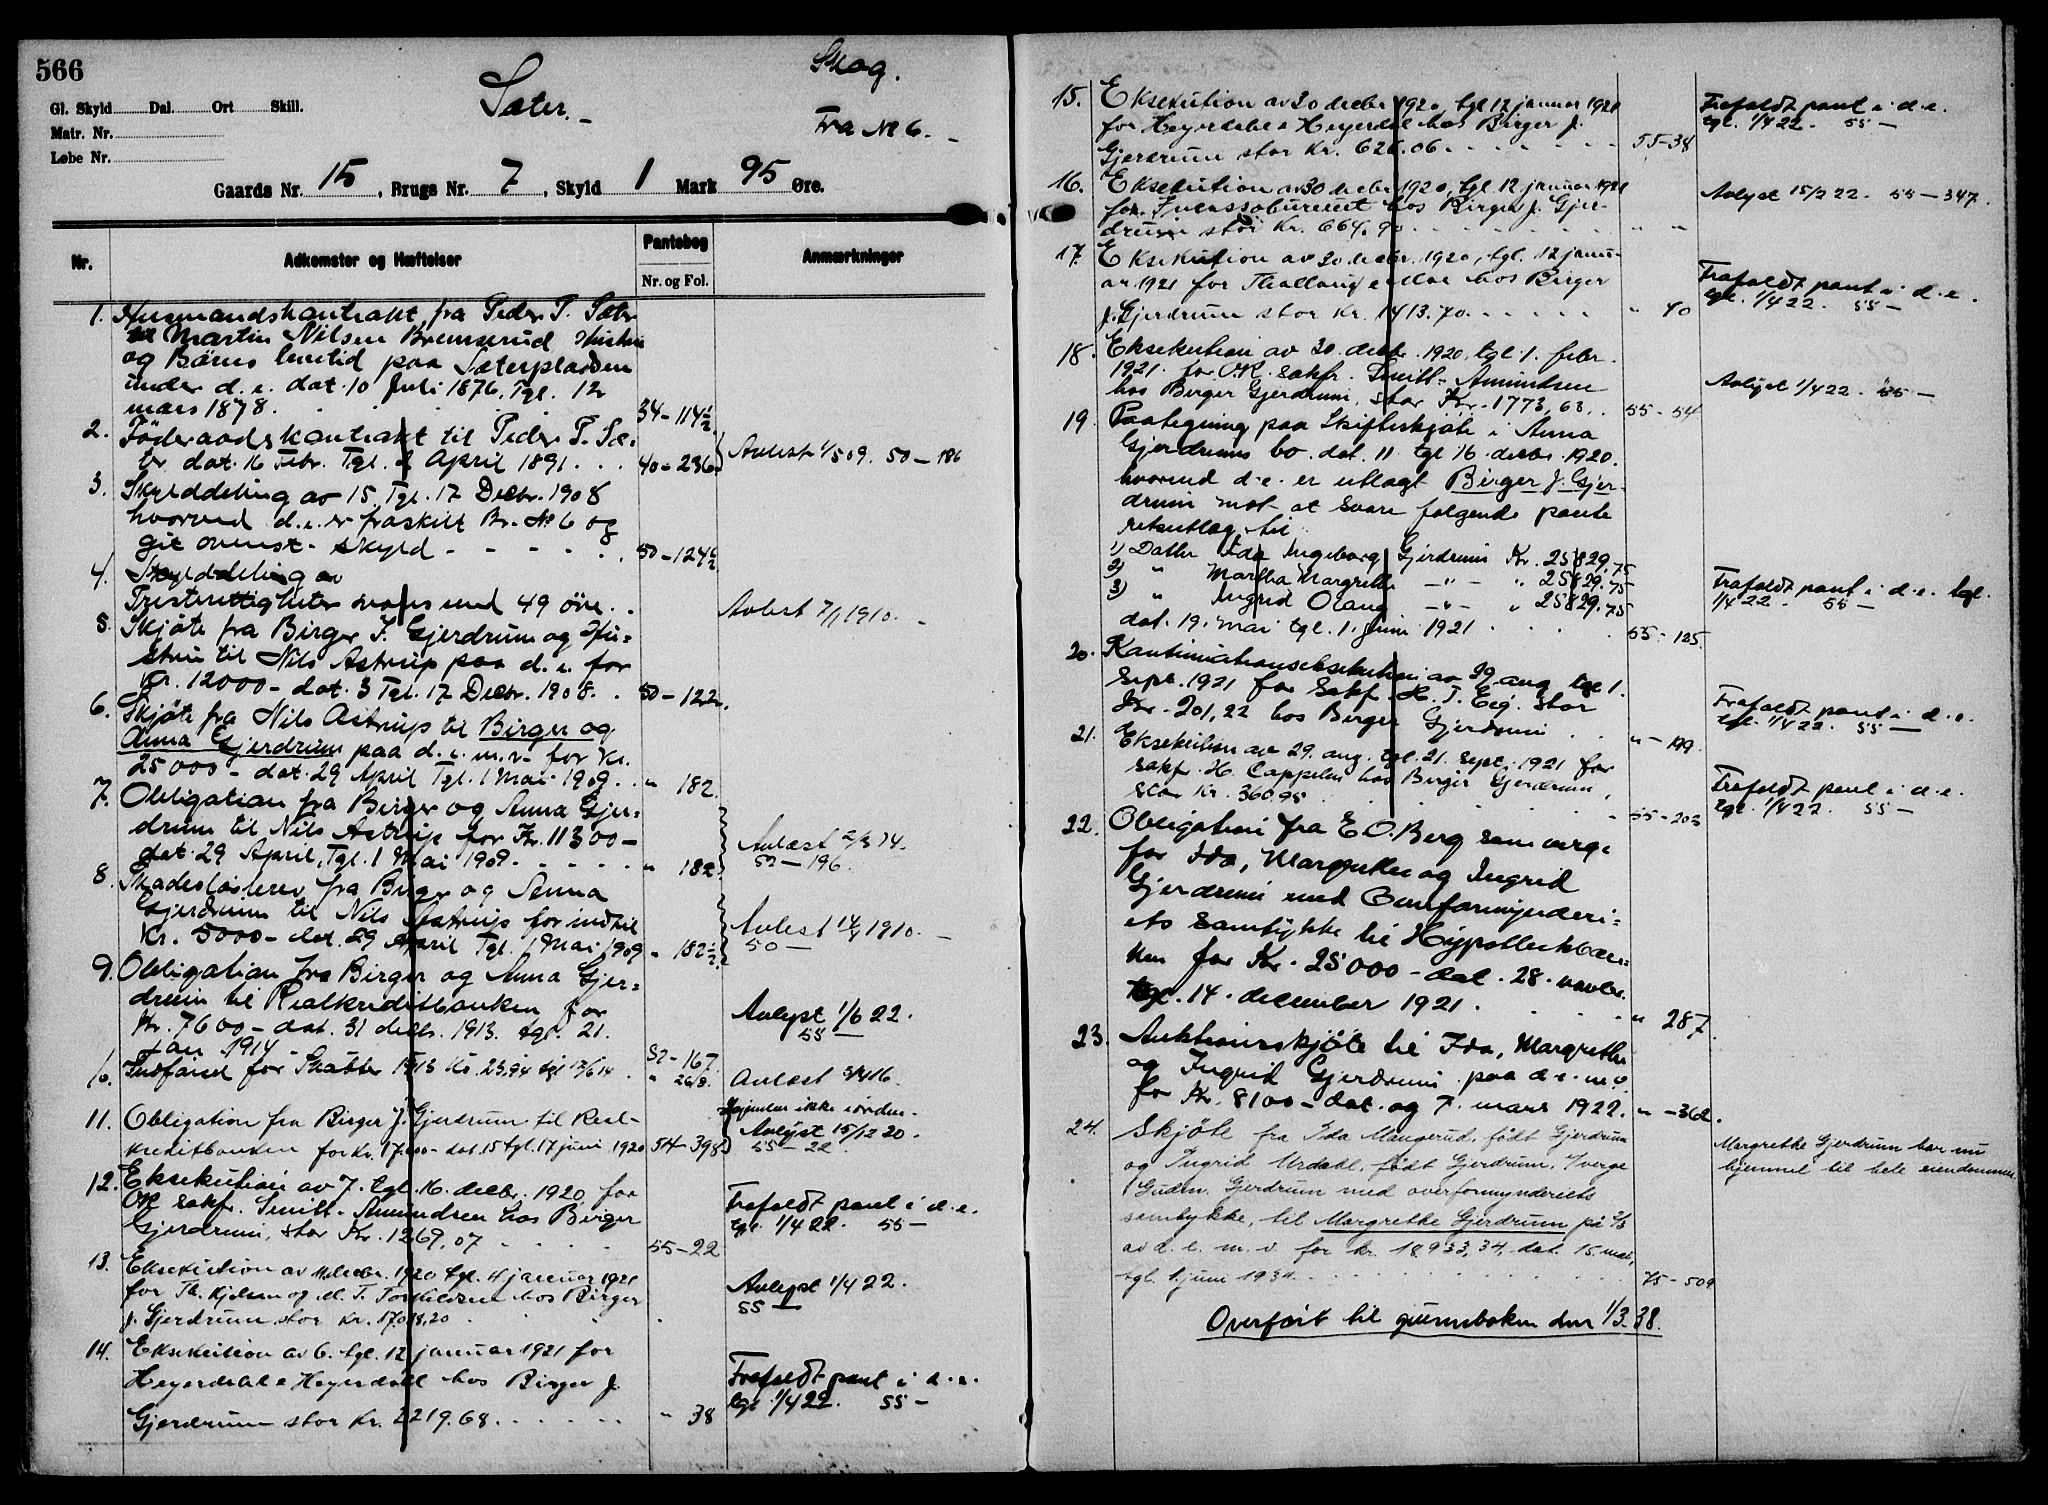 566
Gl. Skyld Dal. Ort Skill.
Matr. Nr.
Løbe Nr.
Sæter.
Skog.
Fra № 6.
Gaards Nr. 15, Brugs Nr. 7, Skyld 1 Mark 95 Øre.
Nr.
Adkomster og Hæftelser
Pantebog
Nr. og Fol.
Anmærkninger
1. Husmandskontrakt fra Peder P. Sæter
til Martin Nilsen Bremserud Hustru
og Børns levetid paa Sæterpladsen
under d. e. dat. 10 Juli 1876, Tgl. 12
mars 1878. 34-114½
2. Föderaadskontrakt til Peder P. Sæ-
ter dat. 16 Febr. Tgl. 2 April 1891 . . . 40-236 Avlæst 1/5 09. 50-186
3. Skylddeling av 15, Tgl. 17 Decbr. 1908
hvorved d. e. er fraskilt Br. № 6 og
git ovenst. skyld - - - - 50-124½
4. Skylddeling av
49 öre. . Avlæst 7/1 1910.
5. Skjöte fra Birger J. Gjerdrum og Hu-
stru til Nils Astrup paa d. e. for
Kr. 12000 - dat. 3 Tgl. 17 Decbr. 1908. . 50-122.
6. Skjöte fra Nils Astrup til Birger og
Anna Gjerdrum paa d. e. m. v. for Kr.
25000 - dat. 29 April Tgl. 1 Mai 1909. . " 182.
7. Obligation fra Birger og Anna Gjer-
drum til Nils Astrup for Kr. 11300 -
dat. 29 April, Tgl. 1 Mai 1909. - - - - " 182 Avlæst 14.
52-196.
8. Skadeslösbrev fra Birger og Anna
Gjerdrum til Nils Astrup for indtil
Kr. 5000 - dat. 29 April Tgl. 1 Mai 1909 " 182½ Avlæst 1910.
50-
9. Obligation fra Birger og Anna Gjer-
drum til Realkreditbanken for
Kr. 7600 - dat. 31 decbr. 1913. tgl. 21.
Jan 1914 52-167. Avlyst 1/6 22.
55
10. for Skatter 1913 Kr. 23,94 tgl 13/6 14. " 268. Avlæst 16.
11. Obligation fra Birger J. Gjerdrum til Real-
kreditbanken for Kr. 17000 - dat. 15 tgl. 17 juni 1920 54-398 ikke
Avlyst 15/12 20.
55-22.
12. Eksekution av 7. tgl. 16. decbr. 1920 for
OR sakf. Smitt-Amundsen hos Birger
Gjerdrum, stor Kr. 1269,07 55-22 Frafaldt pant i d. e.
tgl. 1/4 22. 55-
13. Eksekution av 11. decbr. 1920 tgl. 4 januar 1921
for Th. Kjelsen og M. T. Torkildsen hos Birger
J. Gjerdrum stor Kr. Avlyst 1/4 22.
55
14. Eksekution av 6. tgl. 12 januar 1921 for
Heyerdahl & Heyerdahl hos Birger J.
Gjerdrum stor Kr. 2219.68. . . . . . " 38 Frafaldt pant i d. e.
tgl. 1/4 22. 55-
15. Eksekution av 30 decbr 1920, tgl 12 januar 1921
for Heyerdahl & Heyerdal hos Birger J.
Gjerdrum stor Kr. 626.06. - - - - - 55-38 Frafaldt pant i d. e.
tgl. 1/4 22. 55-
16. Eksekution av 30 decbr 1920, tgl 12 januar 1921
for Incassobureuet hos Birger J. Gjer-
drum stor Kr. 664.90. - - - - - " " Avlyst 15/2 22. 55-347.
17. Eksekution av 20 decbr. 1920, tgl. 12 janu-
ar 1921 for hos Birger
J. Gjerdrum stor Kr. 1413.70. - - - - " 40 Frafaldt pant i d. e.
tgl. 1/4 22. 55-
18. Eksekution av 30. decbr. 1920, tgl. 1. febr.
1921. for O.R. sakfr. Smitt-Amundsen
hos Birger Gjerdrum, stor Kr. 1773,63. . 55-54 Avlyst 1/4 22. 55-
19. Paategning paa Skifteskjöte i Anna
Gjerdrums bo. dat. 11 tgl 16. decbr. 1920.
hvorved d. e. er utlagt Birger J. Gjer-
drum mot at svare følgende pante
retsutlæg til
1) Datter Ida Ingeborg Gjerdrum Kr. 25829.75
2) " Martha Margrethe -"- " 25829.75
3) " Ingrid Olaug -"- " 25829.75
dat. 19. mai tgl. 1. juni 1921 . . . . 55-125. Frafaldt pant i d. e. tgl.
1/4 22. 55-
20. Kontinuationseksekution av 29 aug. tgl. 1.
Sept. 1921 for Sakf. H. T. Eeg. stor
Kr. 201,22 hos Birger Gjerdrum . . " - 199. Frafaldt pant i d. e.
tgl. 1/4 22. 55-
21. Eksekution av 29. aug. tgl. 21. sept. 1921 for
sakf. H. Cappelen hos Birger Gjerdrum,
stor Kr. 360.95 55-203 Frafaldt pant i d. e.
tgl. 1/4 22. 55-
22. Obligation fra E O. Berg som verge
for Ida, Margrethe og Ingrid
Gjerdrum med Overformynderi-
ets samtykke til Hypothekban-
ken for Kr. 25000 - dat. 28. novbr.
tgl. 14. december 1921. . . . " 287.
23. Auktionsskjöte til Ida, Margrethe
og Ingrid Gjerdrum paa d. e. m. v.
for Kr. 8100 - dat. og 7. mars 1922. " - 362.
24. Skjöte fra Ida Mangerud, født Gjerdrum
og Ingrid Urdahl, født Gjerdrum, v/verge
Gudm. Gjerdrum med overformynderiets
samtykke, til Margrethe Gjerdrum på 2/3
av d. e. m. v. for kr. 18.933,34, dat. 15 mai,
tgl. 1. juni 1934. . . . . . . 75-509 Margrethe Gjerdrum har nu
hjemmel til hele eiendommen.
Overfört til grunnboken den 1/3. 38.